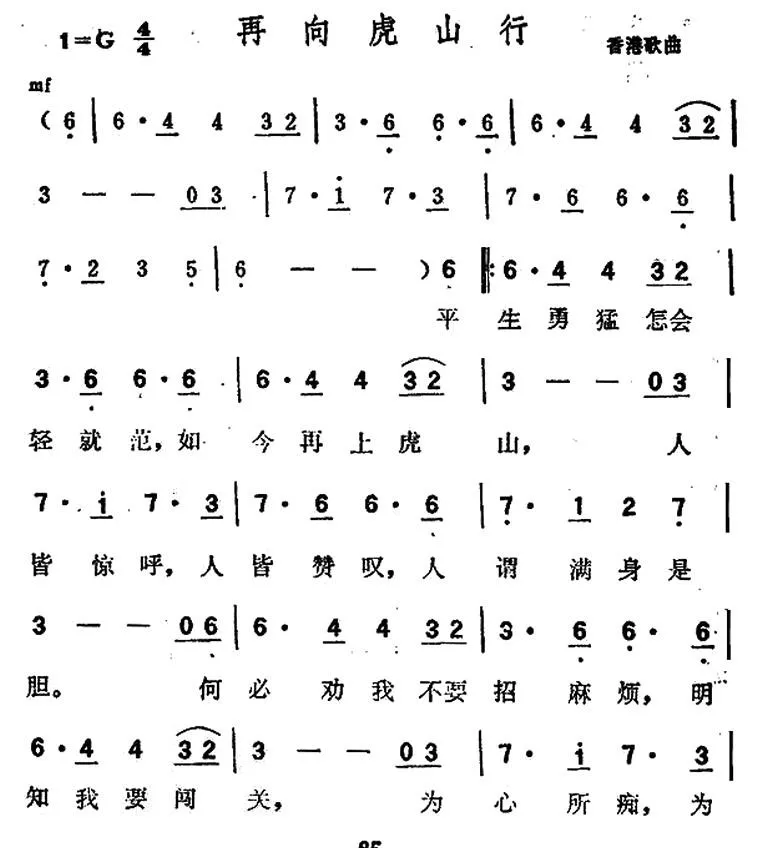 再向虎山行
1=G 4/4
香港歌曲
mf
(6̣ | 6·4 4 32 | 3·6̣ 6̣·6̣ | 6·4 4 32 |
3 — — 03 | 7·i 7·3 | 7·6 6·6̣ |
7̣·2 3 5̣ | 6̣ — — )6 ‖:6·4 4 32 |
平 生 勇 猛 怎会
3·6̣ 6̣·6̣ | 6·4 4 32 | 3 — — 03 |
轻 就 范，如 今 再 上 虎 山， 人
7·i 7·3 | 7·6 6·6̣ | 7̣·1 2 7̣ |
皆 惊 呼，人 皆 赞 叹，人 谓 满 身 是
3 — — 06̣ | 6·4 4 32 | 3·6̣ 6̣·6̣ |
胆。 何 必 劝 我 不要 招 麻 烦，明
6·4 4 32 | 3 — — 03 | 7·i 7·3 |
知 我 要 闯 关， 为 心 所 痴，为